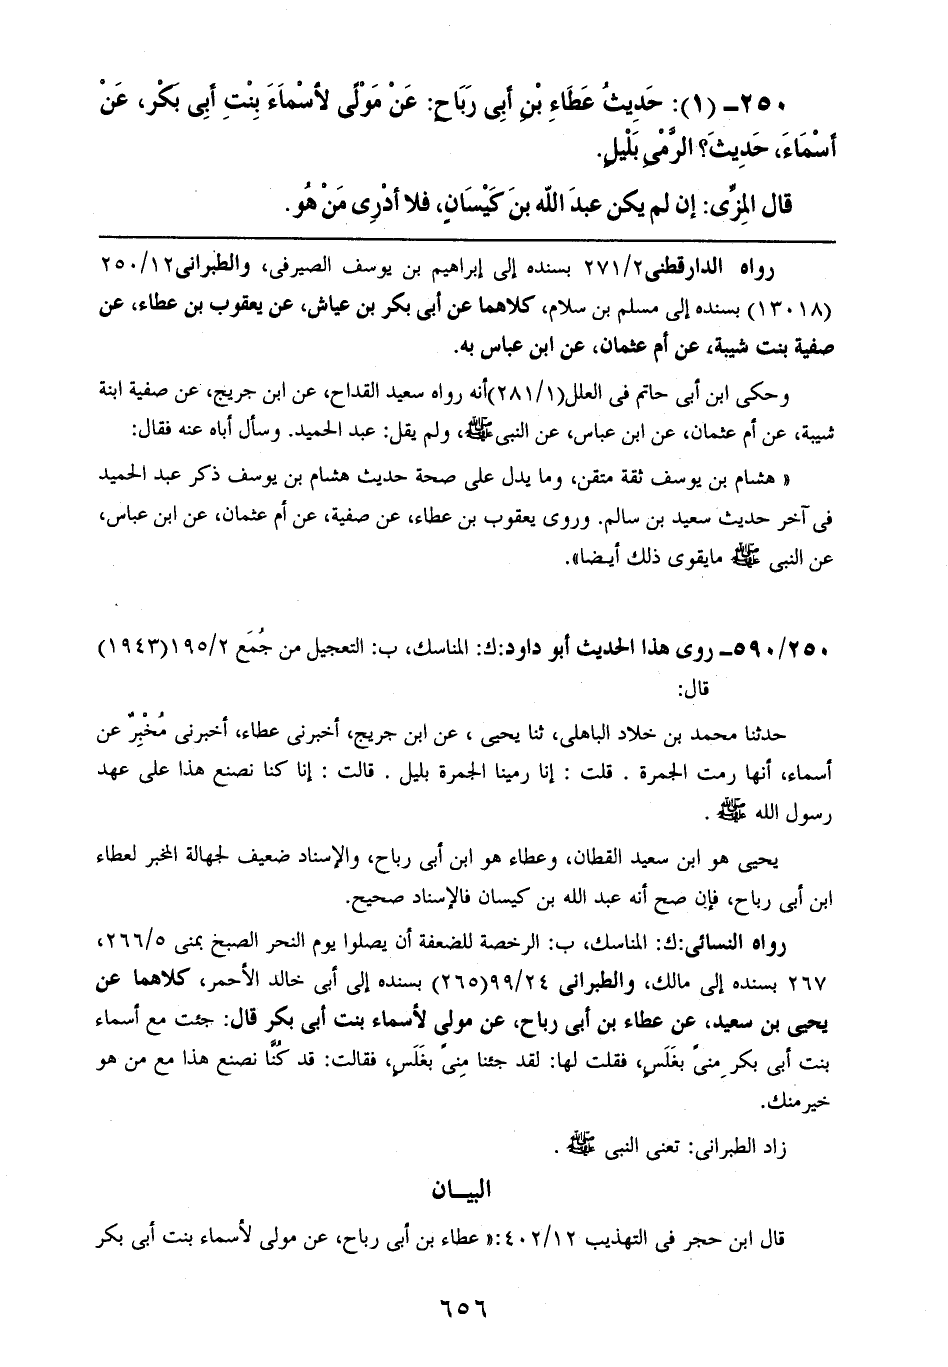 ٢٥٠ـ (١): حَدِيثُ عَطَاءِ بْنِ أبِى رَبَاحٍ: عَنْ مَوْلًى لأسْمَاءَ بِنْتِ أبِى بَكْر، عَنْ
أسْمَاءَ، حَدِيثَ؟ الرَّمْىِ بَلْيلٍ.
قال المِزِّى: إن لم يكن عبدَ الله بنَ كَيْسَانٍ، فلا أدْرِى مَنْ هُو.
رواه الدارقطنى٢٧١/٢ بسنده إلى إبراهيم بن يوسف الصيرفى، والطبرانى٢٥٠/١٢
(١٣٠١٨) بسنده إلى مسلم بن سلام، كلاهما عن أبى بكر بن عياش، عن يعقوب بن عطاء، عن
صفية بنت شيبة، عن أم عثمان، عن ابن عباس به.
وحكى ابن أبى حاتم فى العلل(٢٨١/١)أنه رواه سعيد القداح، عن ابن جريج، عن صفية ابنة
شيبة، عن أم عثمان، عن ابن عباس، عن النبىﷺ، ولم يقل: عبد الحميد. وسأل أباه عنه فقال:
« هشام بن يوسف ثقة متقن، وما يدل على صحة حديث هشام بن يوسف ذكر عبد الحميد
فى آخر حديث سعيد بن سالم. وروى يعقوب بن عطاء، عن صفية، عن أم عثمان، عن ابن عباس،
عن النبى ﷺ مايقوى ذلك أيضا».
٥٩٠/٢٥٠ـ روى هذا الحديث أبو داود:ك: المناسك، ب: التعجيل من جُمَع ١٩٥/٢(١٩٤٣)
قال:
حدثنا محمد بن خلاد الباهلى، ثنا يحيى ، عن ابن جريج، أخبرنى عطاء، أخبرنى مُخْبِرٌ عن
أسماء، أنها رمت الجمرة . قلت : إنا رمينا الجمرة بليل . قالت : إنا كنا نصنع هذا على عهد
رسول الله ﷺ .
يحيى هو ابن سعيد القطان، وعطاء هو ابن أبى رباح، والإسناد ضعيف لجهالة المخبر لعطاء
ابن أبى رباح، فإن صح أنه عبد الله بن كيسان فالإسناد صحيح.
رواه النسائى:ك: المناسك، ب: الرخصة للضعفة أن يصلوا يوم النحر الصبخ بمنى ٢٦٦/٥،
٢٦٧ بسنده إلى مالك، والطبرانى ٩٩/٢٤(٢٦٥) بسنده إلى أبى خالد الأحمر، كلاهما عن
يحيى بن سعيد، عن عطاء بن أبى رباح، عن مولى لأسماء بنت أبى بكر قال: جئت مع أسماء
بنت أبى بكر مِنىً بغَلَسٍ، فقلت لها: لقد جئنا مِنىً بغَلَسٍ، فقالت: قد كُنَّا نصنع هذا مع من هو
خيرمنك.
زاد الطبرانى: تعنى النبى ﷺ .
البيـان
قال ابن حجر فى التهذيب ٤٠٢/١٢:« عطاء بن أبى رباح، عن مولى لأسماء بنت أبى بكر
٦٥٦